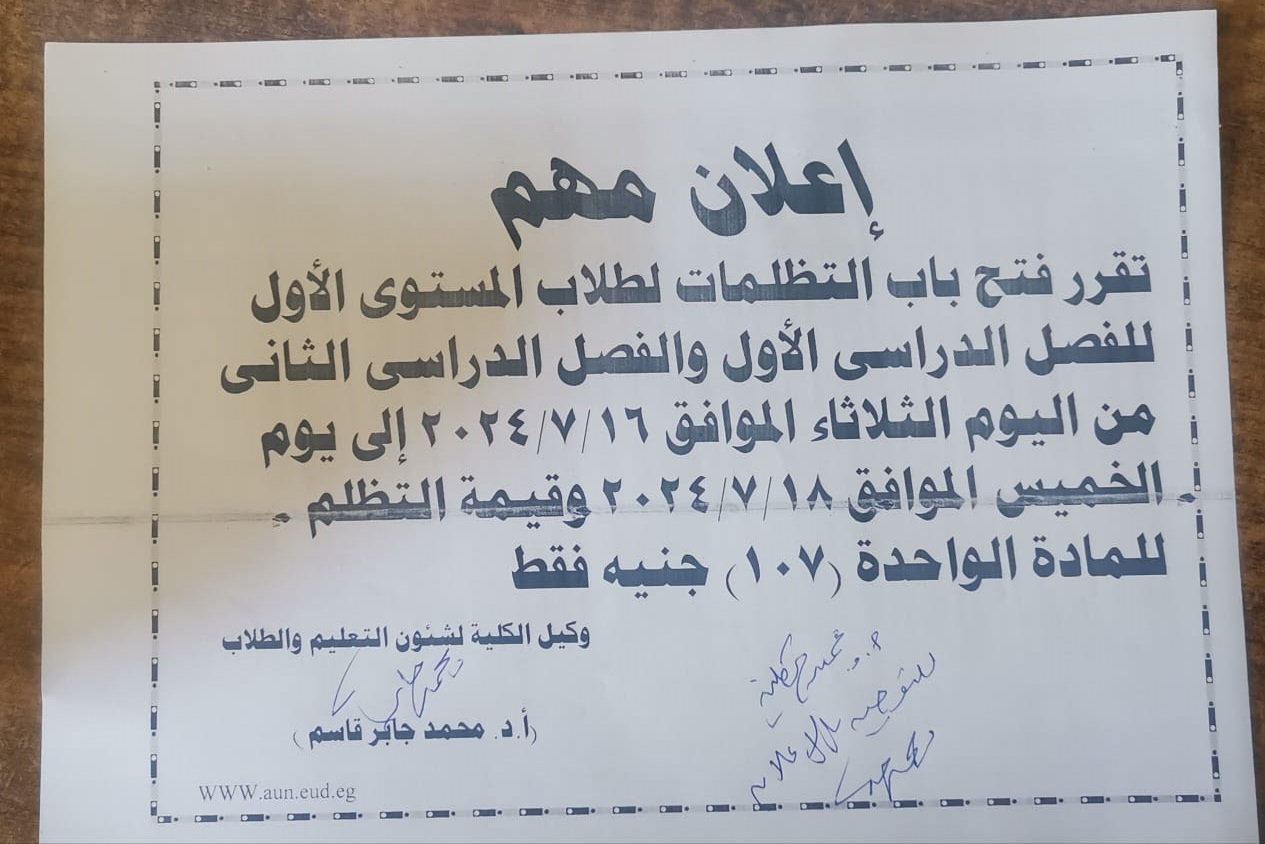 إعلان مهم
تقرر فتح باب التظلمات لطلاب المستوى الأول
للفصل الدراسى الأول والفصل الدراسى الثانى
من اليوم الثلاثاء الموافق ٢٠٢٤/٧/١٦ إلى يوم
الخميس الموافق ٢٠٢٤/٧/١٨ وقيمة التظلم
للمادة الواحدة (١٠٧) جنيه فقط
وكيل الكلية لشئون التعليم والطلاب
محمد جابر
(أ.د. محمد جابر قاسم)
WWW.aun.eud.eg